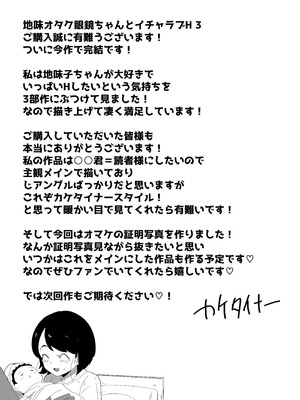 地味オタク眼鏡ちゃんとイチャラブH3
ご購入誠に有難うございます！
ついに今作で完結です！
私は地味子ちゃんが大好きで
いっぱいHしたいという気持ちを
3部作にぶつけて見ました！
なので描き上げて凄く満足しています！
ご購入していただいた皆様も
本当にありがとうございます！
私の作品は○○君＝読者様にしたいので
主観メインで描いており
じアングルばっかりだと思いますが
これぞカケタイナースタイル！
と思って暖かい目で見てくれたら有難いです！
そして今回はオマケの証明写真を作りました！
なんか証明写真見ながら抜きたいと思い
いつかはこれをメインにした作品も作る予定です♡
なのでぜひファンでいてくれたら嬉しいです♡
では次回作もご期待ください♡！
カケタイナー